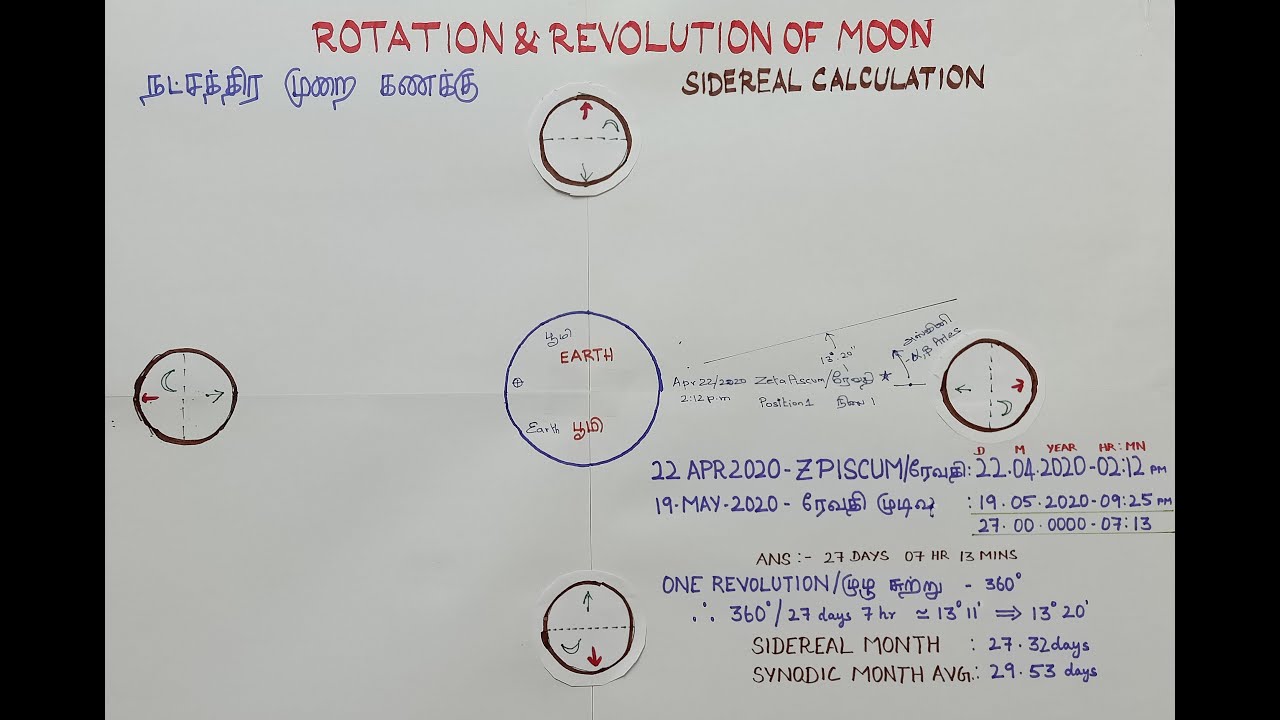 ROTATION & REVOLUTION OF MOON
நட்சத்திர முறை கணக்கு
SIDEREAL CALCULATION
பூமி
EARTH
Earth பூமி
13° 20"
அஸ்வினி
α, β Aries
Apr 22/2020 Zeta Piscum/ரேவதி
2:12 p.m Position 1 நிலை 1
D M YEAR HR: MN
22 APR 2020 - Z PISCUM/ரேவதி: 22.04.2020-02:12 PM
19.MAY.2020 - ரேவதி முடிவு : 19.05.2020-09:25 PM
27.00.0000-07:13
ANS:- 27 DAYS 07 HR 13 MINS
ONE REVOLUTION/முழு சுற்று - 360°
∴ 360°/27 days 7 hr ≃ 13° 11' ⇒ 13° 20'
SIDEREAL MONTH : 27.32 days
SYNODIC MONTH AVG.: 29.53 days